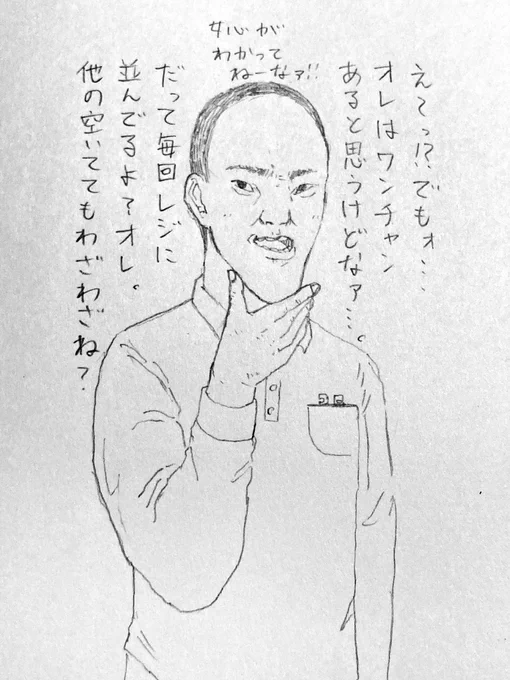 女心が
わかって
ねーなァ!!
え〜っ!?でもォ……
オレはワンチャン
あると思うけどなァ…。
だって毎回レジに
並んでるよ?オレ。
他の空いててもわざわざね?